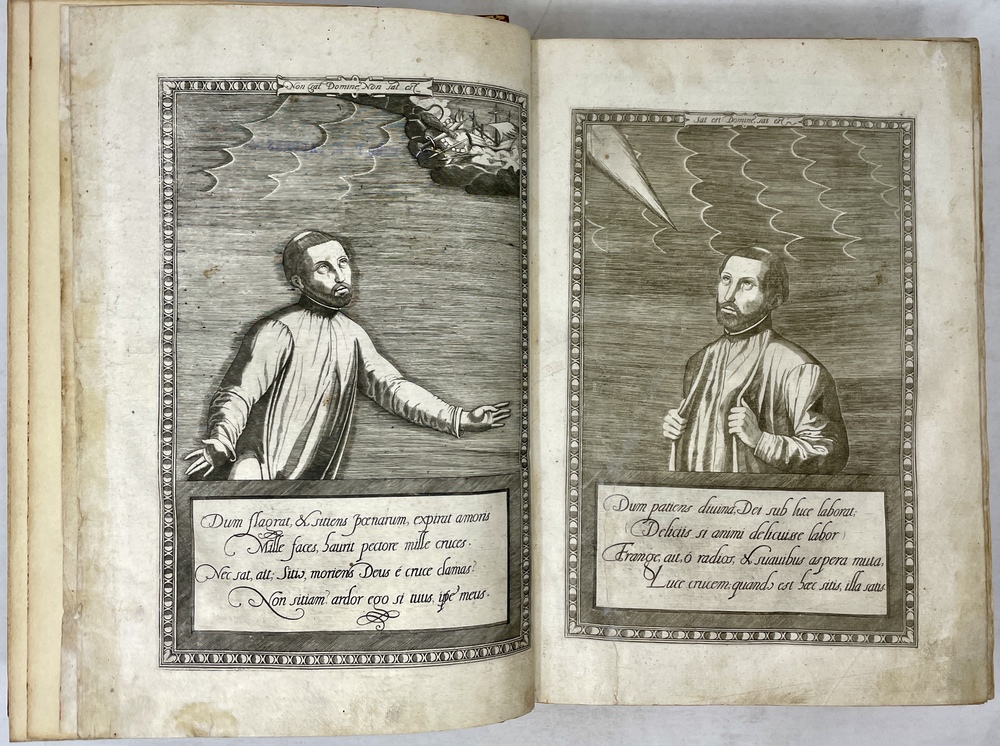 Non sat Domine, Non sat est
Dum flagrat, & sitiens pœnarum, expirat amoris
Mille faces, haurit pectore mille cruces.
Nec sat, ait; Sitio, moriens Deus é cruce clamas:
Non sitiam? ardor ego si tuus, ipse meus.
Sat est Domine, sat est
Dum patiens diuina; Dei sub luce laborat;
(Deliciis si animi delicuisse labor)
Frange, ait, ó radios, & suauibus aspera muta,
Luce crucem: quando est hæc sitis, illa satis.